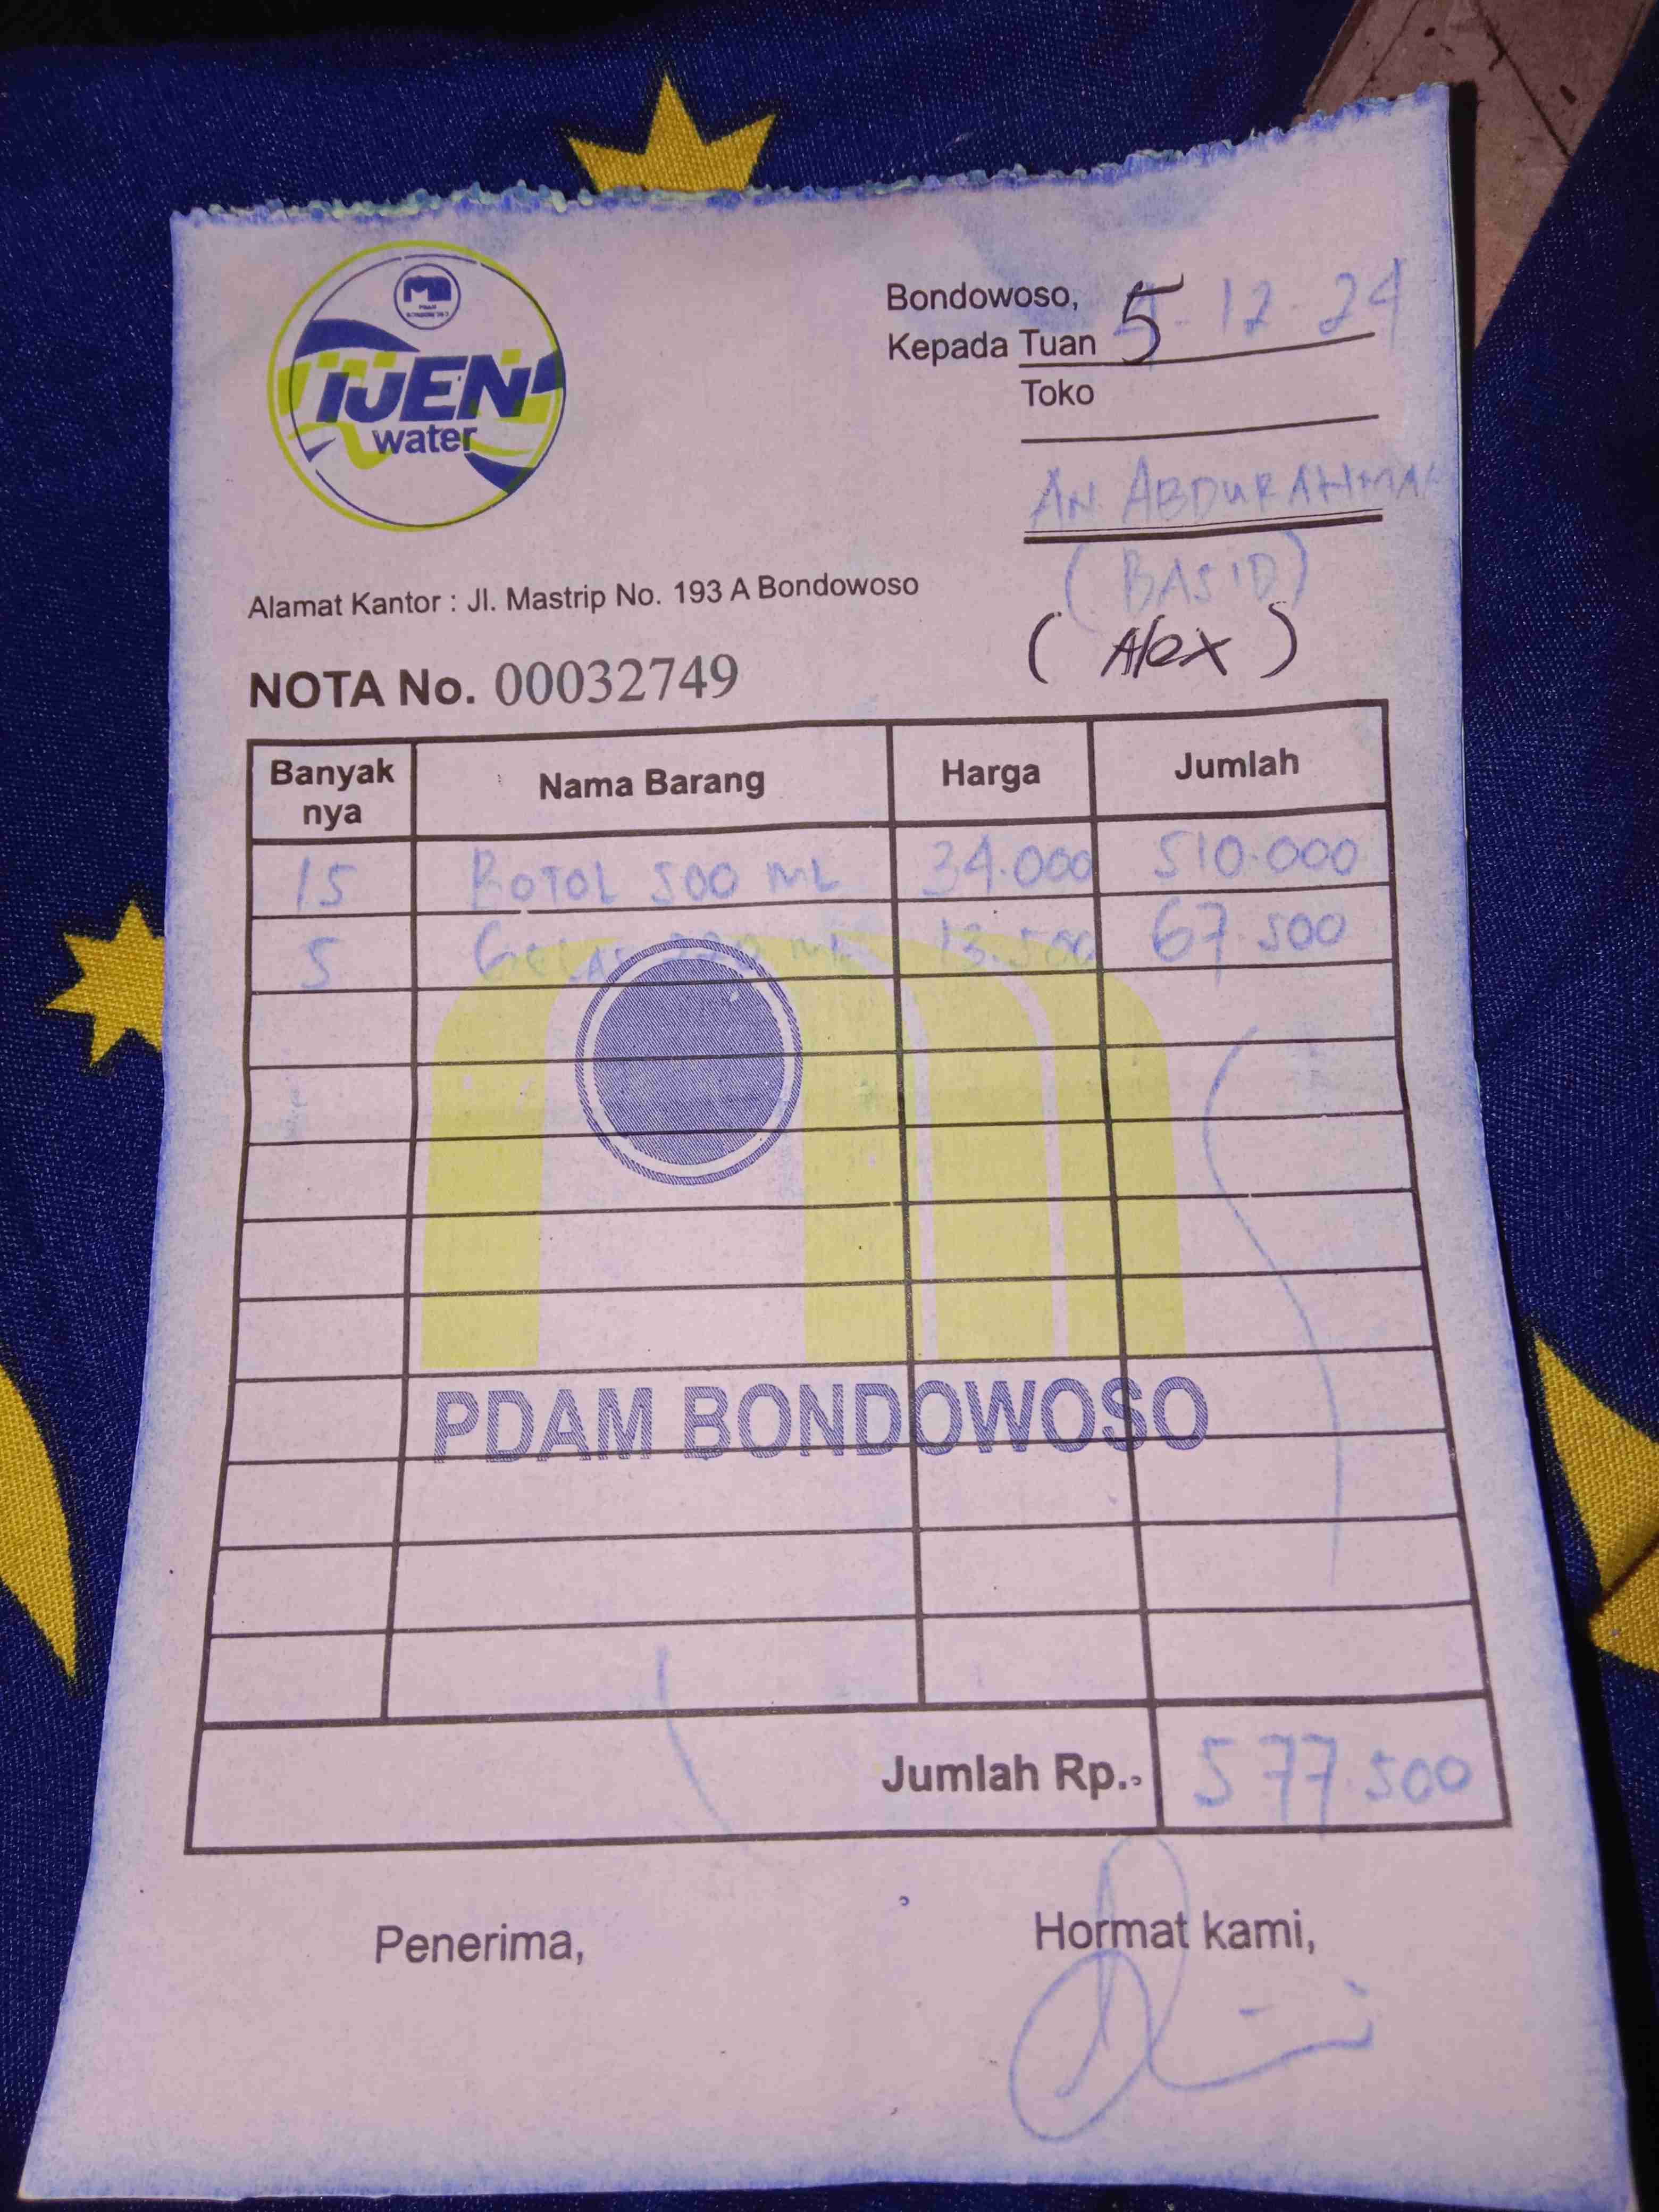 PDAM
BONDOWOSO
IJEN
water
Bondowoso, 5-12-24
Kepada Tuan
Toko
AN ABDURAHMAN
(BASID)
(Alex)
Alamat Kantor : Jl. Mastrip No. 193 A Bondowoso
NOTA No. 00032749
Banyak nya Nama Barang Harga Jumlah
15 BOTOL 500 ML 34.000 510.000
5 GELAS 220 ML 13.500 67.500
PDAM BONDOWOSO
Jumlah Rp.. 577.500
Penerima, Hormat kami,